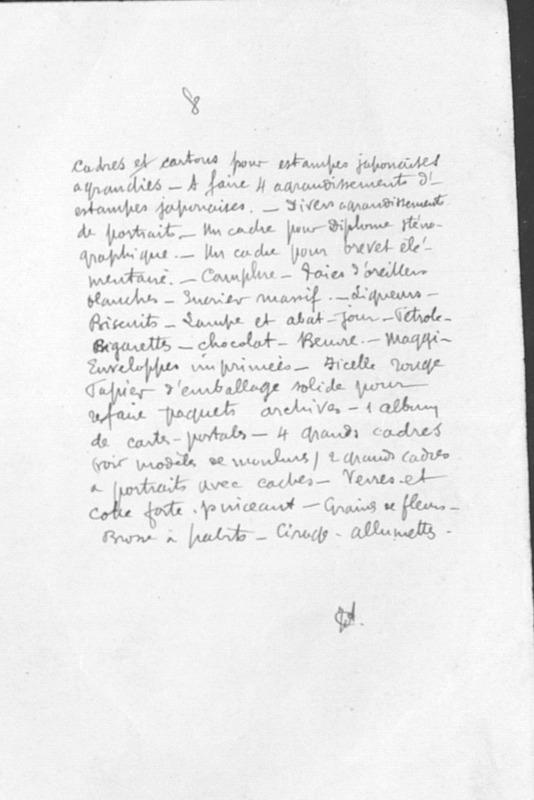 8
Cadres et cartons pour estampes japonaises
agrandies — A faire 4 agrandissements d'
estampes japonaises. — Divers agrandissements
de portraits — Un cadre pour diplome sténo-
graphique. — Un cadre pour brevet élé-
mentaire. — Camphre — Taies d'oreillers
blanches — Sucrier massif. — Liqueurs —
Biscuits — Lampe et abat-jour — Pétrole —
Cigarettes — chocolat — Beurre — Maggi —
Enveloppes imprimées — Ficelle rouge
Papier d'emballage solide pour
refaire paquets archives — 1 album
de cartes-postales — 4 grands cadres
(voir modèles de moulures) 2 grands cadres
a portraits avec caches — Verres et
colle forte. pinceaux — Graines de fleurs —
Brosse à habits — Cirage — allumettes.